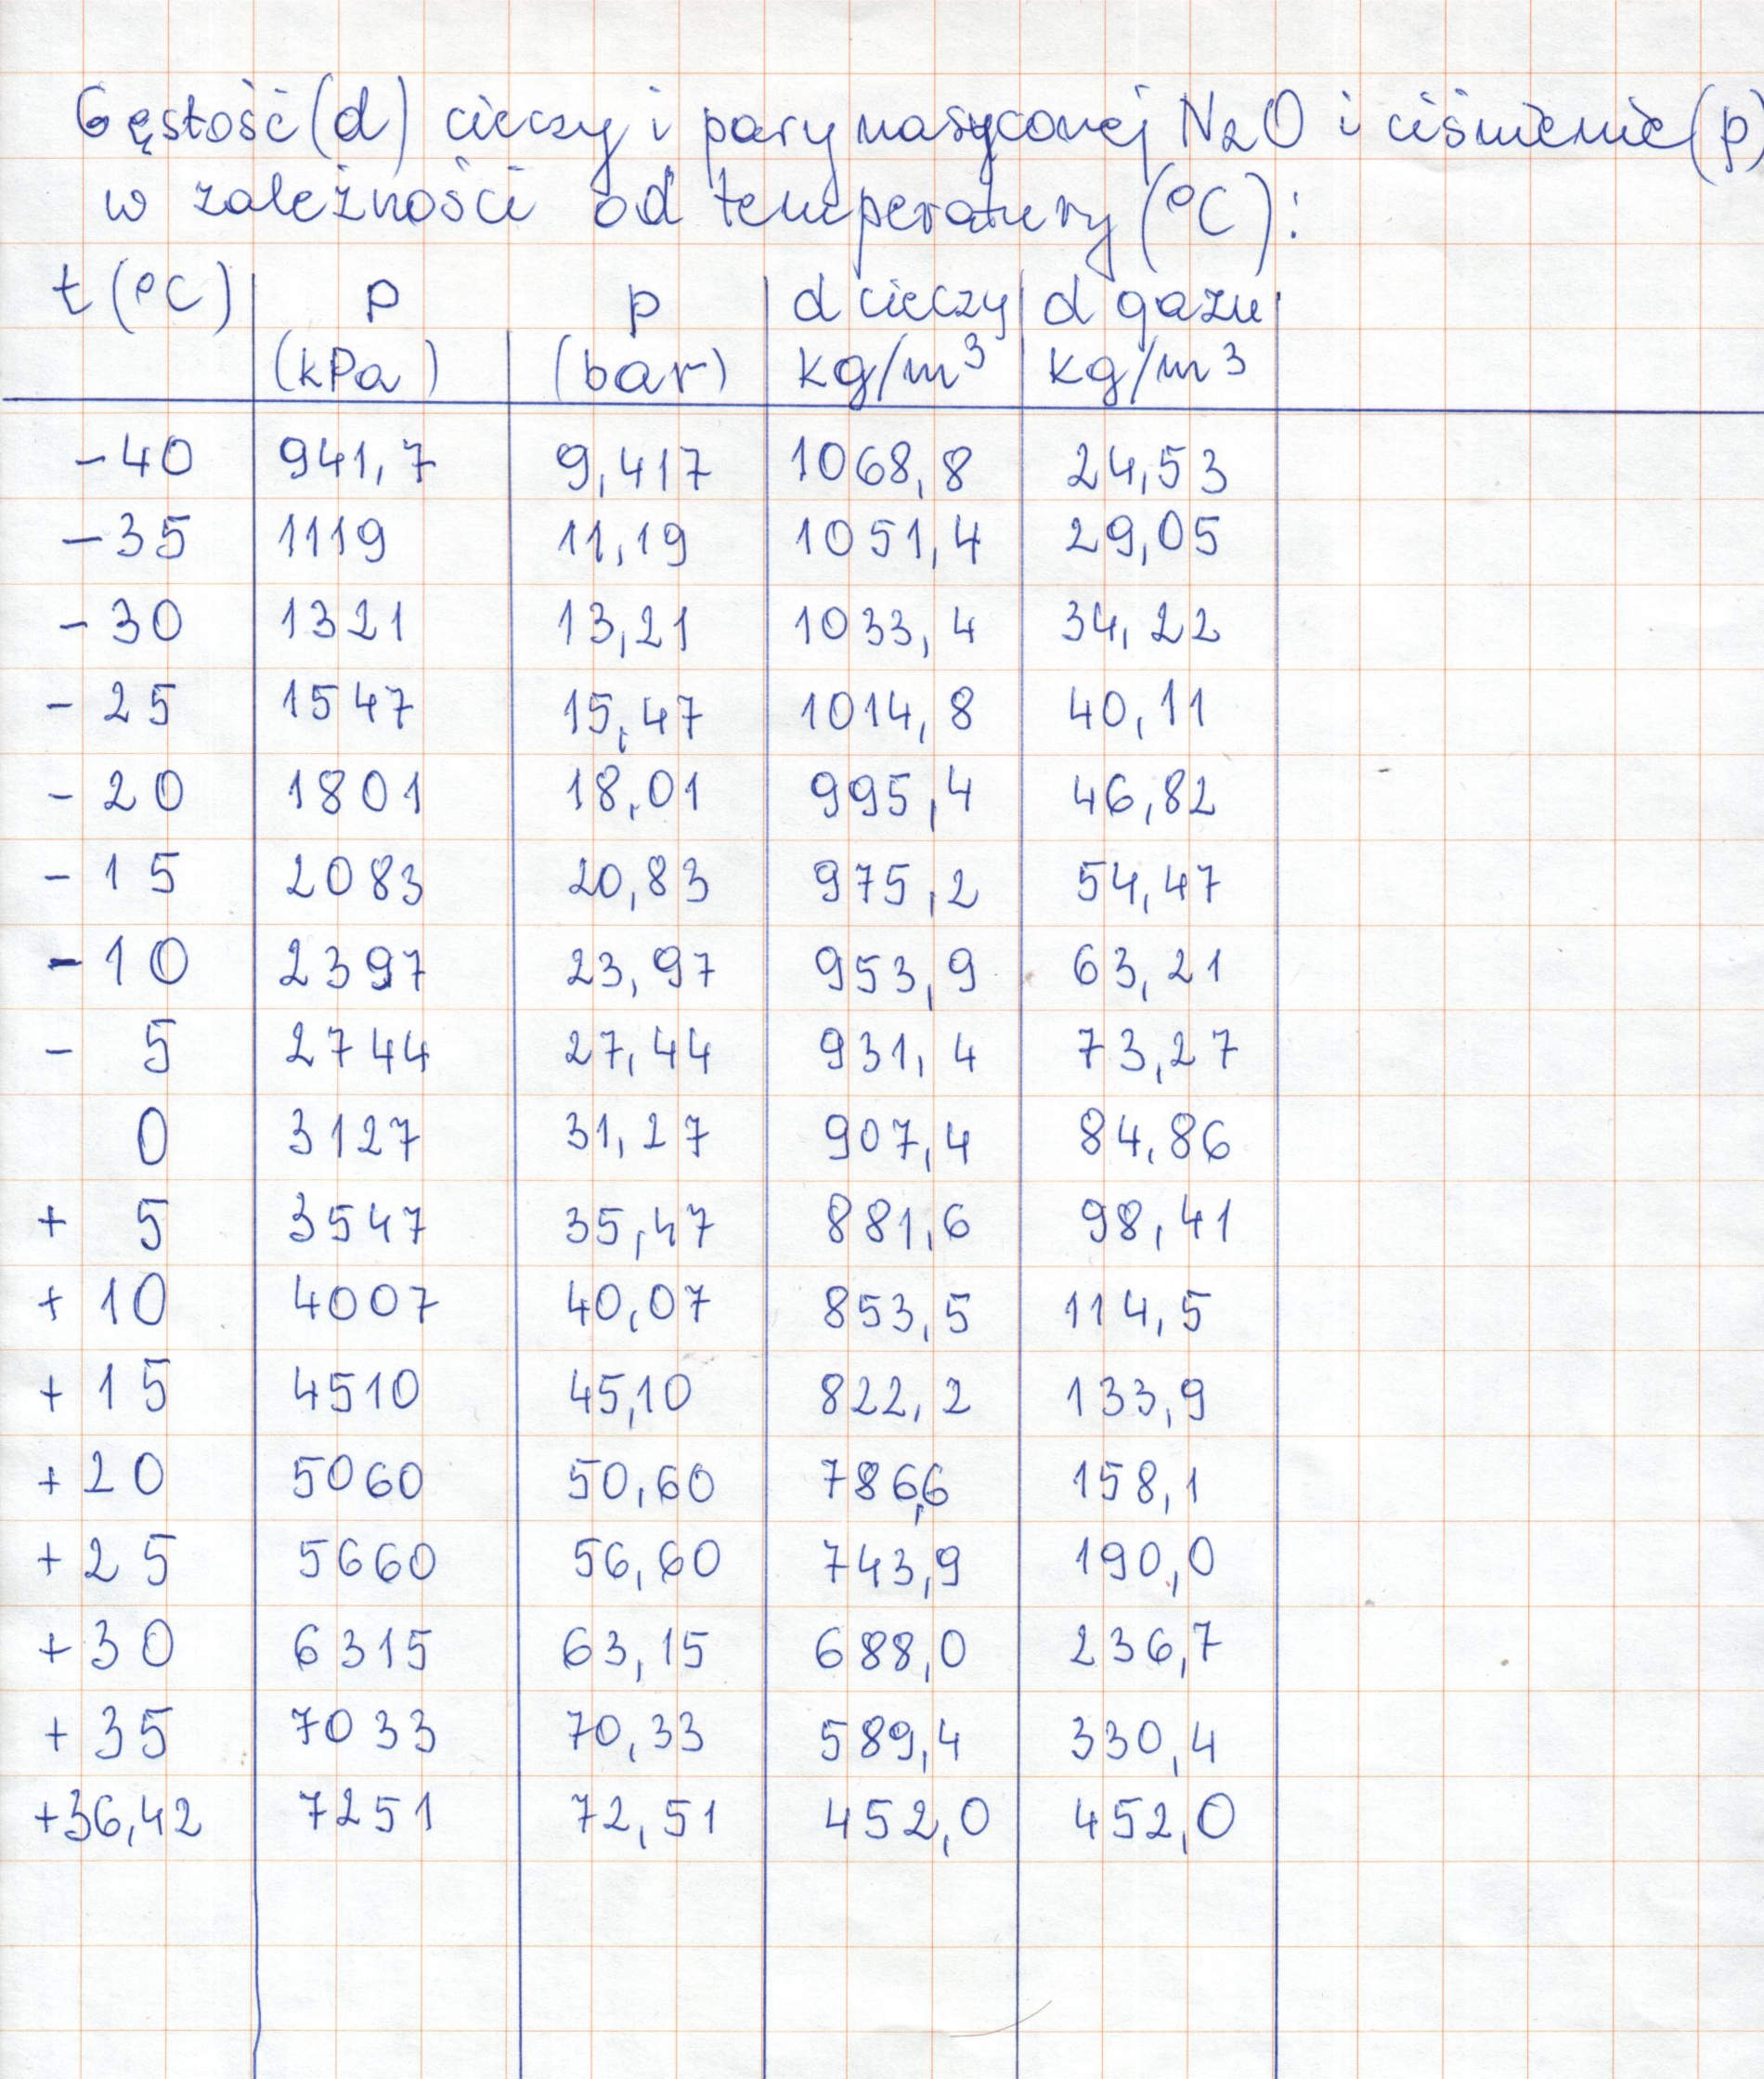 Gęstość (d) cieczy i pary nasyconej N2O i ciśnienie (p)
w zależności od temperatury (°C):
t (°C) p p d cieczy d gazu
(kPa) (bar) kg/m³ kg/m³
-40 941,7 9,417 1068,8 24,53
-35 1119 11,19 1051,4 29,05
-30 1321 13,21 1033,4 34,22
-25 1547 15,47 1014,8 40,11
-20 1801 18,01 995,4 46,82
-15 2083 20,83 975,2 54,47
-10 2397 23,97 953,9 63,21
- 5 2744 27,44 931,4 73,27
0 3127 31,27 907,4 84,86
+ 5 3547 35,47 881,6 98,41
+ 10 4007 40,07 853,5 114,5
+ 15 4510 45,10 822,2 133,9
+ 20 5060 50,60 786,6 158,1
+ 25 5660 56,60 743,9 190,0
+ 30 6315 63,15 688,0 236,7
+ 35 7033 70,33 589,4 330,4
+36,42 7251 72,51 452,0 452,0